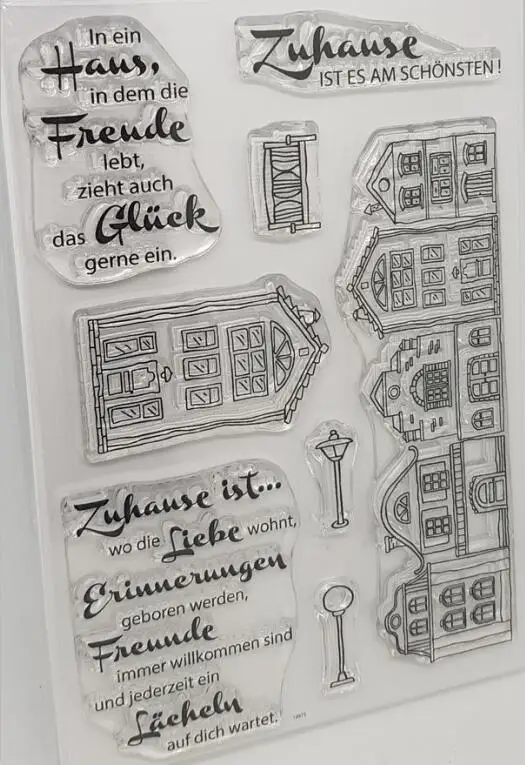 In ein
Haus,
in dem die
Freude
lebt,
zieht auch
das Glück
gerne ein.
Zuhause
IST ES AM SCHÖNSTEN!
Zuhause ist...
wo die Liebe wohnt,
Erinnerungen
geboren werden,
Freunde
immer willkommen sind
und jederzeit ein
Lächeln
auf dich wartet.